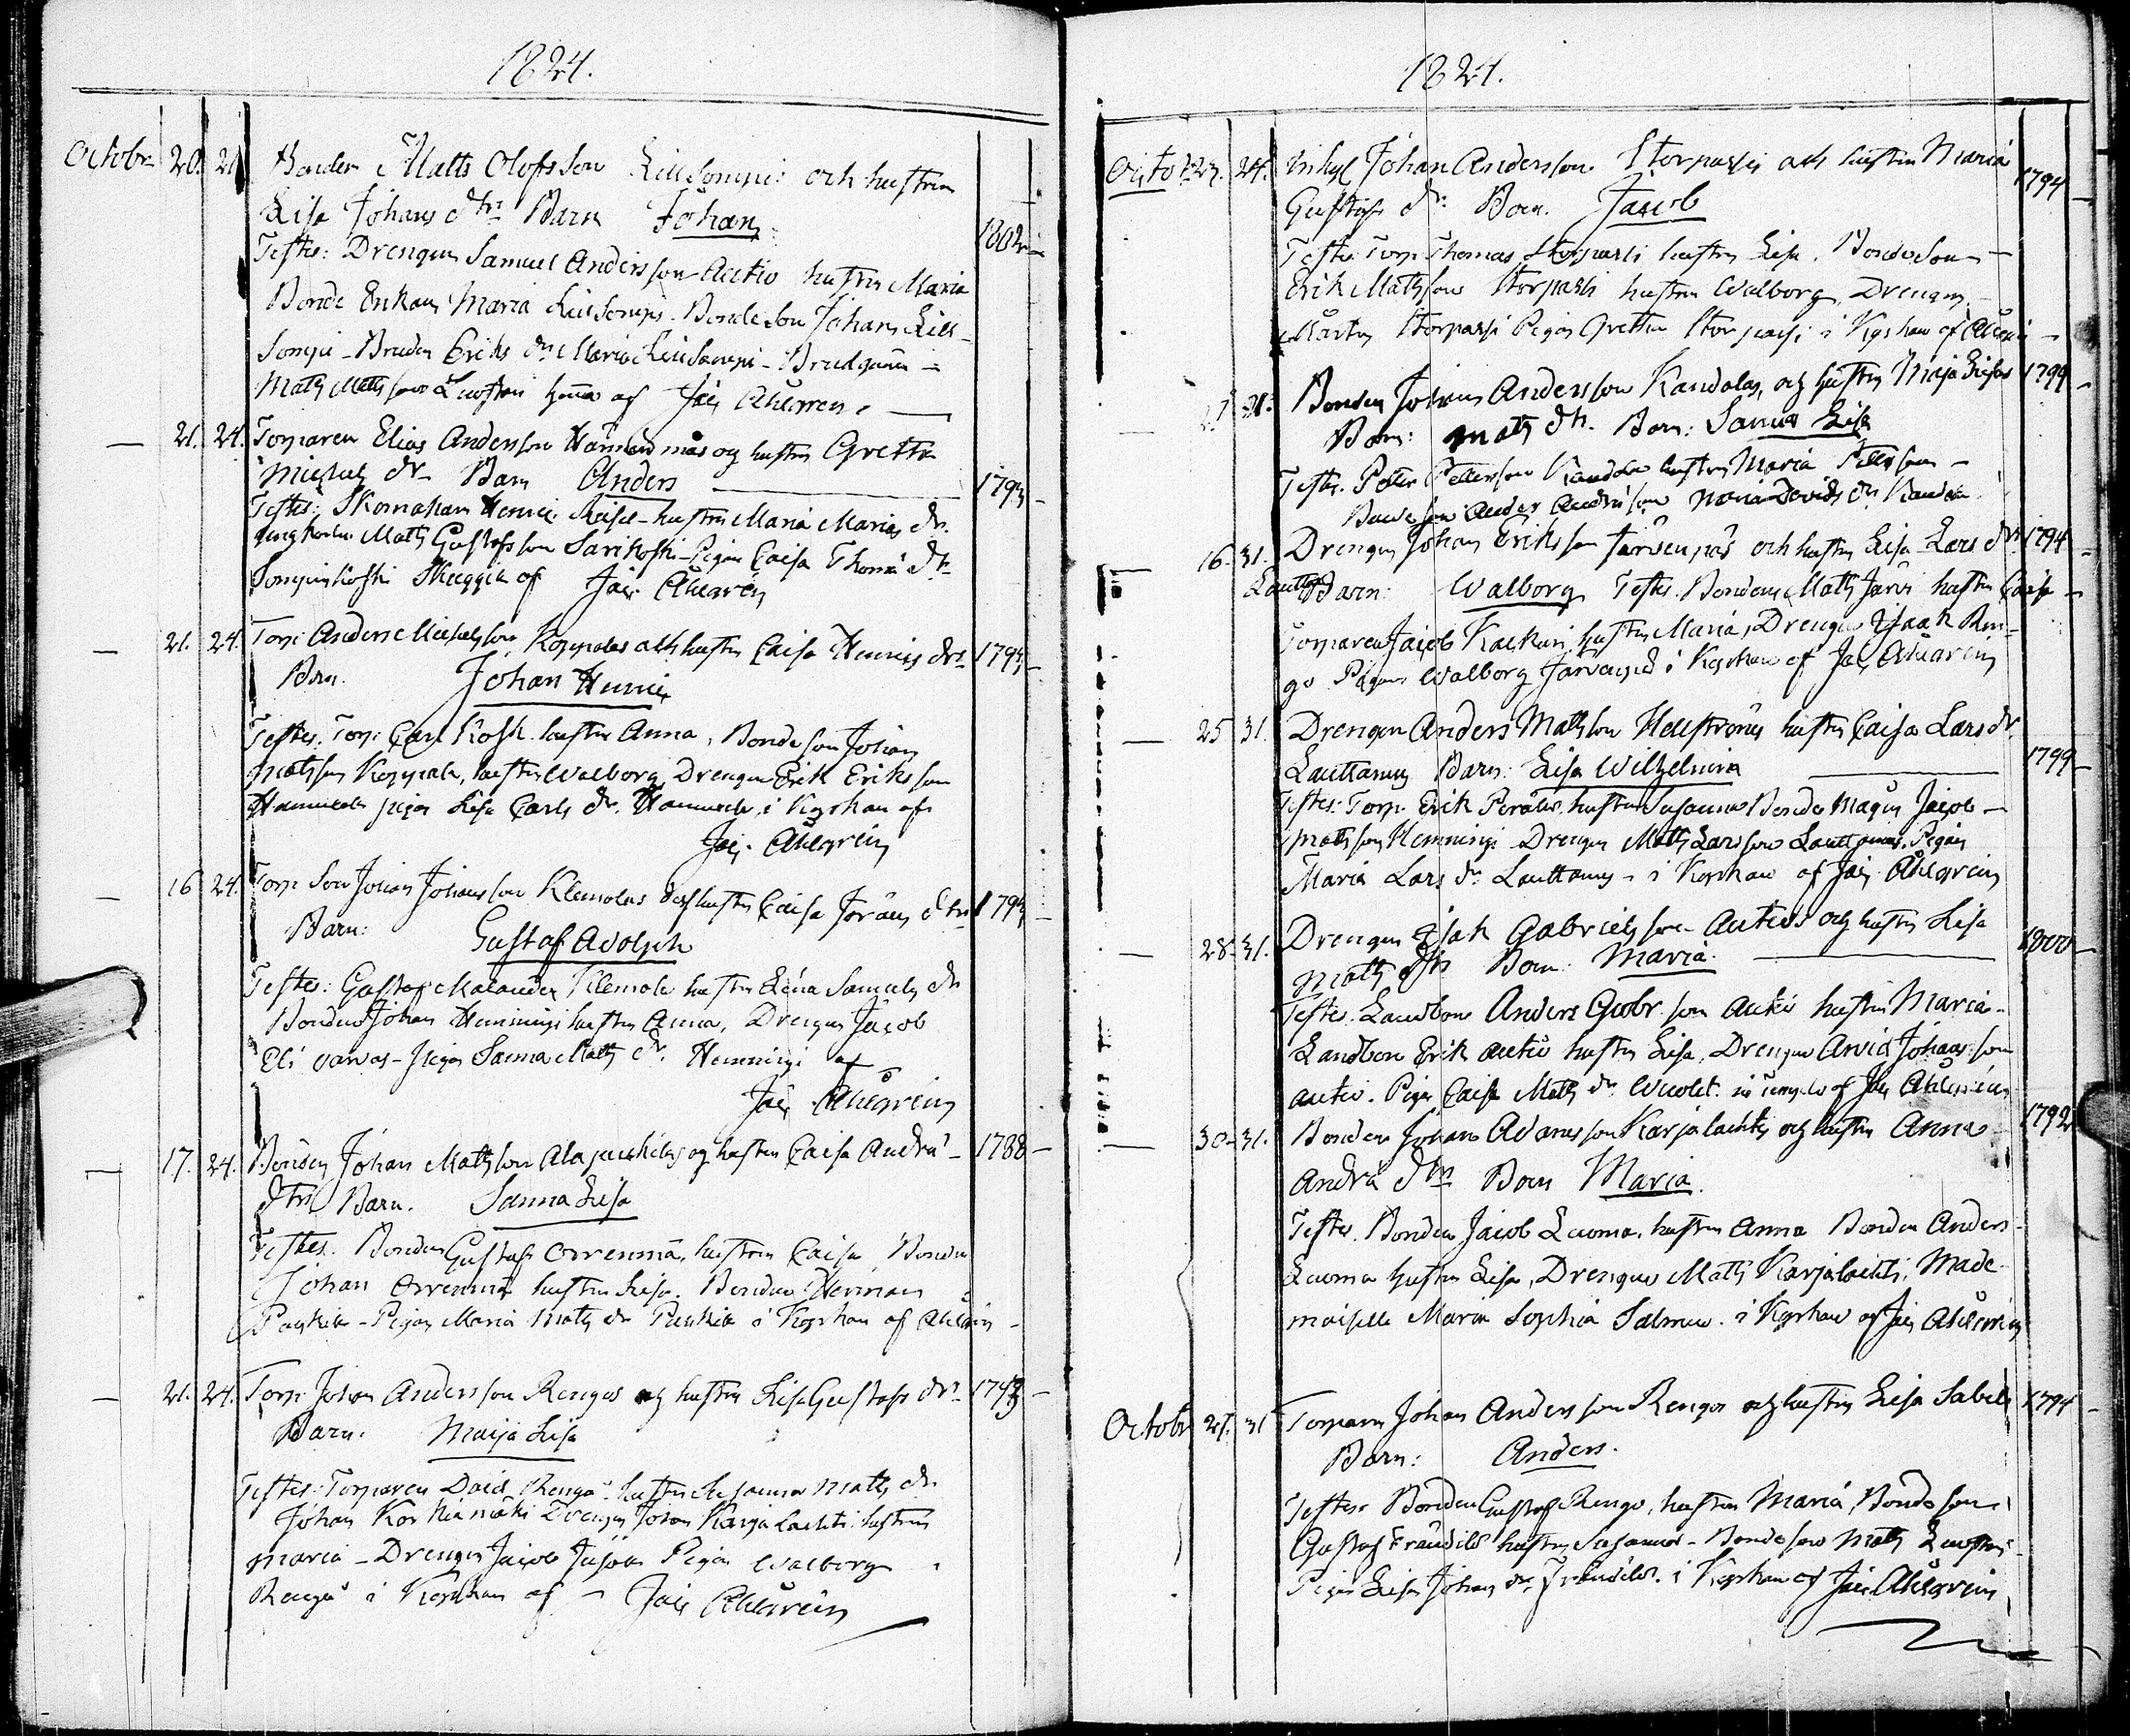 1824.
Octobr 20. 21 Bonden Matts Olofsson Lillsomppi och hustrun
Lisa Johans dtr Barn Johan 1802
Testes: Drengen Samuel Andersson Autio hustrun Maria
Bonde Enkan Maria Lillsomppi. Bonde Son Johan Lill-
somppi - Eriks dr Maria Lillsomppi - Brudgum
Matts Mattsson af Jac Ahlgren.
21. 24. Torparen Elias Andersson och hustrun Gretha
Michels dr Barn Anders 1793
Testes: Skomakare Henric hustrun Maria Marias dr.
Matts Gustafsson Sarikoski - Pigan Caisa Thoma dr
Sompinkoski af Jac. Ahlgren
21. 24. Torp: Anders Michelsson Koppalas och hustru Caisa Henrics dr. 1793
Barn. Johan Henric
Testes: Torp: Carl Koski hustru Anna, Bonde son Johan
Mattsson Koppala, hustru Walborg, Drengen Erik Eriksson
pigan Lisa Carls dr. i Kyrkan af
Jac. Ahlgren
16 24. Torp Son Johan Johansson Klemolas dess hustru Caisa Jörans dtr 1793
Barn: Gustaf Adolph
Testes: Gustaf Malander Klemola hustru Lena Samuels dr
Bonden Johan Hemmingi hustru Anna, Drengen Jacob
Eli varvas - Pigan Sanna Matts dr. Hemmingi af
Jac. Ahlgren
17. 24. Bonden Johan Mattsson Alapuskilas och hustru Caisa Andra 1788
dtr Barn. Sanna Lisa
Testes. Bonden Gustaf Orrenmä, hustrun Caisa Bonden
Johan Orrenmä hustru Lisa. Bonden Herman
Puskila - Pigan Maria Matts dr Puskila i Kyrkan af Ahlgren
21. 24. Torp: Johan Andersson Rengos och hustru Lisa Gustafs dr. 1793
Barn. Maija Lisa
Testes: Torparen David Rengo hustru Susanna Matts dr
Johan Korkiamäki Drengen Johan Karjalachti hustrun
Maria - Drengen Jacob Pigan Walborg
Rengo i Kyrkan af Jac Ahlgren
1824.
Octobr 24. Johan Andersson Storpassi och hustru Maria 1794
Gustafs dr: Barn. Jacob
Testes: Torp Thomas Storpassi hustru Lisa. Bondeson
Erik Mattsson Storpassi hustru Walborg, Drengen
Mårten Storpassi Pigan Gretha Storpassi i Kyrkan af Ahlgren
21 31. Bonden Johan Andersson Kandolas, och hustru Maja Lisa 1799
Matts dr. Barn: Sanna Lisa
Testes. Petter Pettersson Kandola hustru Maria Pettersson
Bonde son Anders Andersson Maria Davids dr Kandola
16. 31. Drengen Johan Eriksson Järvenpäs och hustru Lisa Lars dr 1794
Barn: Walborg Testes. Bonden Matts Järvi hustru Caisa
Torparen Jacob Kalkuri, hustru Maria, Drengen Isaak Ren-
go Pigan Walborg Järvenpä i Kyrkan af Jac Ahlgren
25 31. Drengen Anders Mattsson Hellströms hustru Caisa Lars dr.
Lauttamus Barn: Lisa Wilhelmina 1799
Testes: Torp: Erik Perälä, hustru Susanna Bonde Magen Jacob
Mattsson Hemmingi - Drengen Matts Larsson Lauttamus. Pigan
Maria Lars dr Lauttamus - i Kyrkan af Jac Ahlgren
28. 31. Drengen Isak Gabrielsson Autios och hustru Lisa 1800
Matts dtr Barn: Maria.
Testes. Landbon Anders Gabr. son Autio hustru Maria.
Landbon Erik Autio hustru Lisa, Drengen Arvid Johansson
Autio. Pigan Caisa Matts dr. af Jac Ahlgren
30. 31. Bonden Johan Adamsson Karjalachtis och hustru Anna 1792
Andra dtr Barn Maria.
Testes. Bonden Jacob Luoma, hustru Anna Bonden Anders
Luoma hustru Lisa, Drengen Matts Karjalachti, Made-
moiselle Maria Sophia Salmen. i Kyrkan af Jac Ahlgren
Octobr 27. 31 Torparen Johan Andersson Rengos och hustru Lisa Sabels 1794
Barn: Anders.
Testes: Bonden Gustaf Rengo, hustru Maria, Bonde son
Gustaf Frändilä hustru Susanna - Bonde son Matts
Pigan Lisa Johans dr. Frändilä. i Kyrkan af Jac Ahlgren